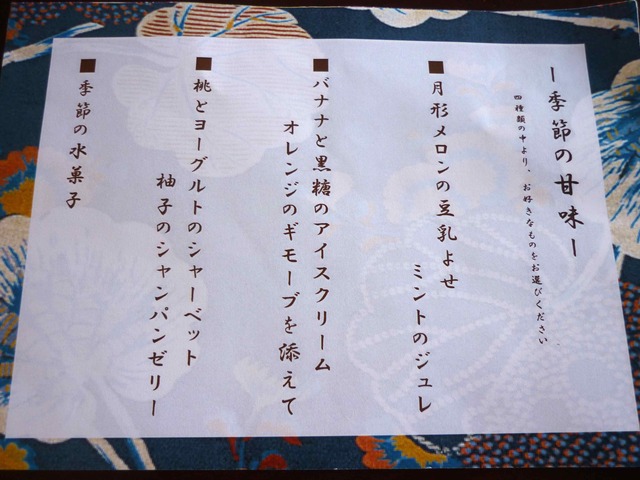 ー季節の甘味ー
四種類の中より、お好きなものをお選びください
■月形メロンの豆乳よせ
ミントのジュレ
■バナナと黒糖のアイスクリーム
オレンジのギモーブを添えて
■桃とヨーグルトのシャーベット
柚子のシャンパンゼリー
■季節の水菓子